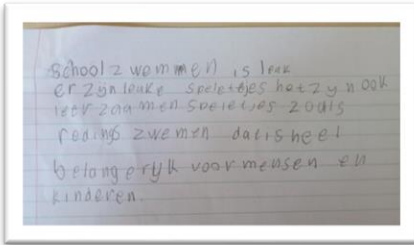 school zwemmen is leuk
er zijn leuke speletjes het zyn ook
leer zaamen speletjes zoals
redings zwemen dat is heel
belangerijk voor mensen en
kinderen.